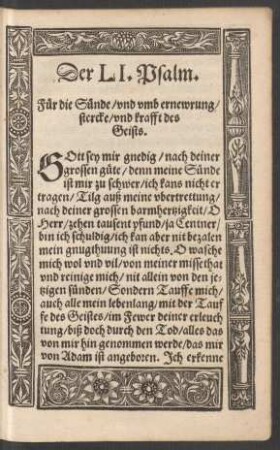 Der L I. Psalm.
Für die Sünde/vnd vmb ernewrung/
stercke/vnd krafft des
Geists.
GOtt sey mir gnedig/nach deiner
grossen güte/denn meine Sünde
ist mir zu schwer/ich kans nicht er
tragen/Tilg auß meine vbertrettung/
nach deiner grossen barmhertzigkeit/O
Herr/zehen tausent pfund/ja Centner/
bin ich schuldig/ich kan aber nit bezalen
mein gnugthiung ist nichts. O wasche
mich wol vnd vil/von meiner missethat
vnd reinige mich/nit allein von den je-
tzigen sünden/Sondern Tauffe mich/
auch alle mein lebenlang/mit der Tauf
fe des Geistes/im Fewer deiner erleuch
tung/biß doch durch den Tod/alles das
von mir hin genommen werde/das mir
von Adam ist angeboren. Ich erkenne